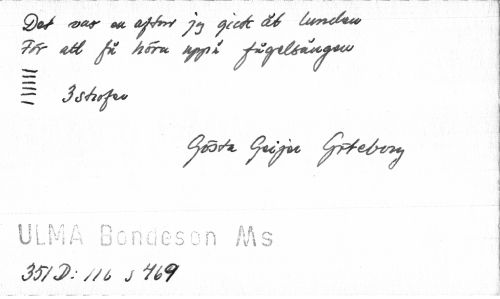 Det var en afton jg gick åt lunden
För att få höra uppå fågelsången
3 strofer
Gösta Geijer Göteborg
ULMA Bondeson Ms
351 D: 116 s 469